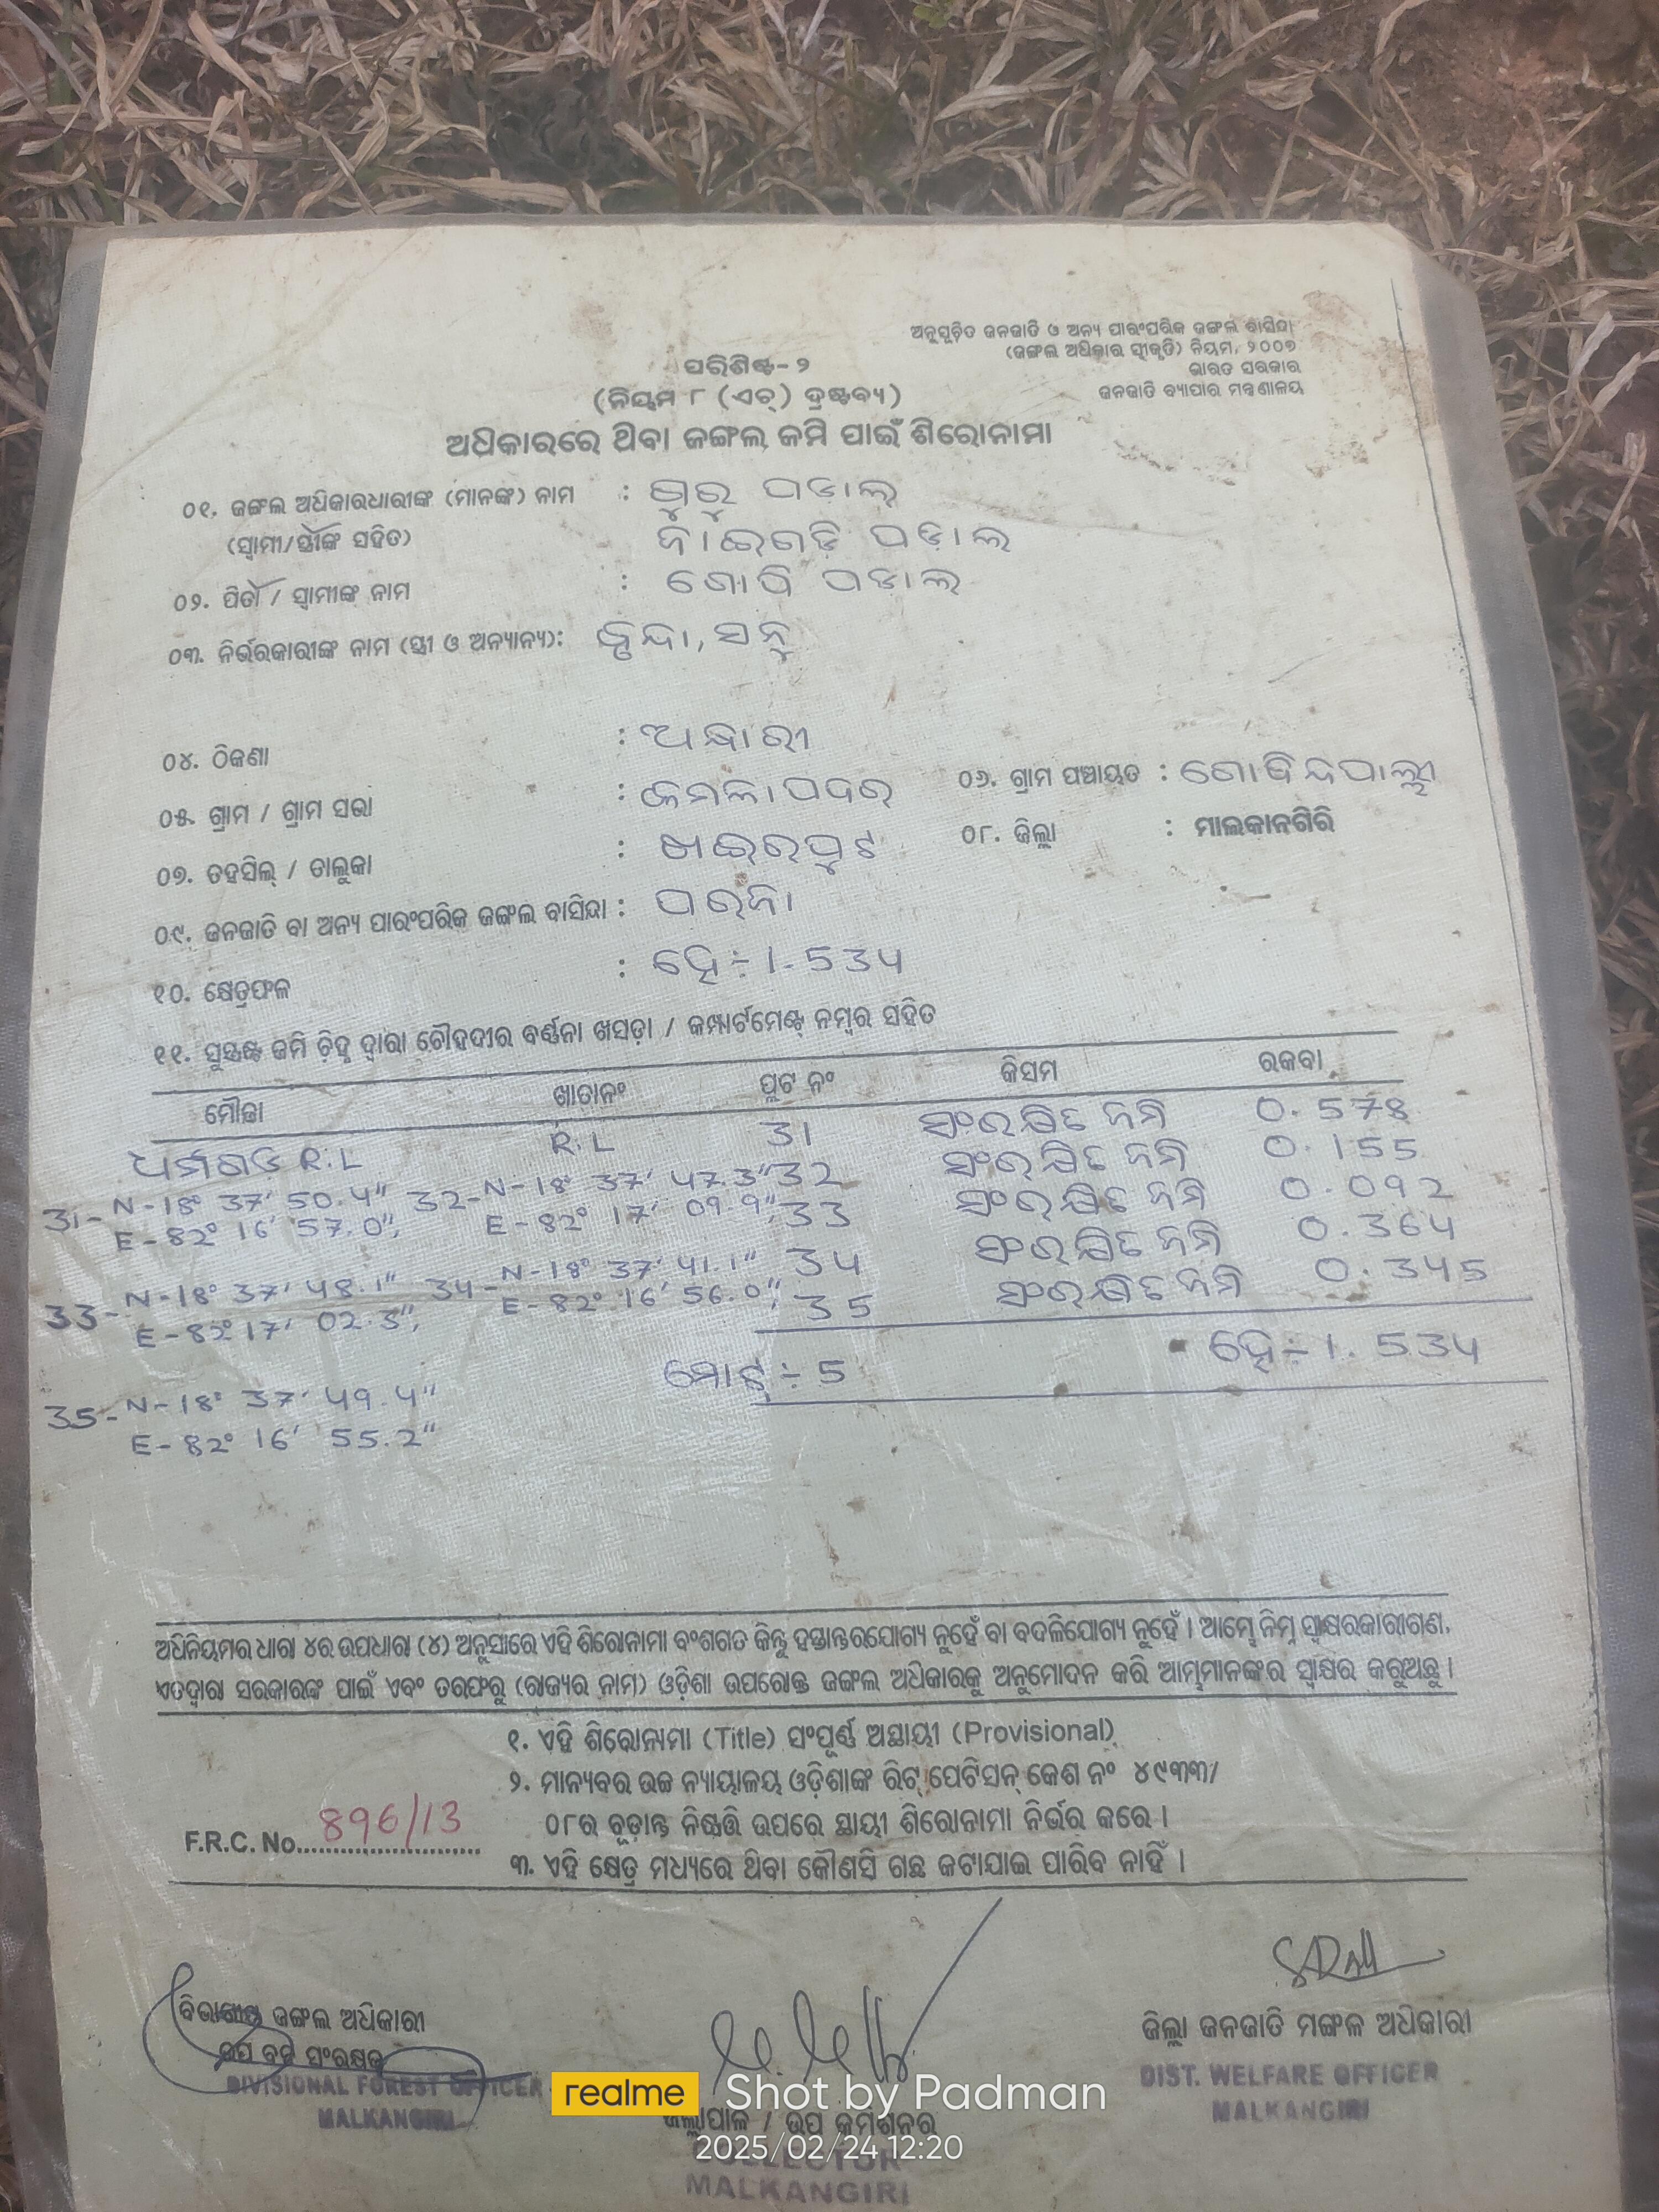 ଅନୁସୂଚିତ ଜନଜାତି ଓ ଅନ୍ୟ ପାରଂପରିକ ଜଙ୍ଗଲ ବାସିନ୍ଦା
(ଜଙ୍ଗଲ ଅଧିକାର ସ୍ୱୀକୃତି) ନିୟମ, ୨୦୦୭
ଭାରତ ସରକାର
ଜନଜାତି ବ୍ୟାପାର ମନ୍ତ୍ରଣାଳୟ
ପରିଶିଷ୍ଟ-୨
(ନିୟମ ୮ (ଏଚ୍) ଦ୍ରଷ୍ଟବ୍ୟ)
ଅଧିକାରରେ ଥିବା ଜଙ୍ଗଲ ଜମି ପାଇଁ ଶିରୋନାମା
୦୧. ଜଙ୍ଗଲ ଅଧିକାରଧାରୀଙ୍କ (ମାନଙ୍କ) ନାମ : ଗୁରୁ ପଡାଲ୍
(ସ୍ୱାମୀ/ସ୍ତ୍ରୀଙ୍କ ସହିତ) ପଡ଼ାଲ
୦୨. ପିତା / ସ୍ୱାମୀଙ୍କ ନାମ : ଗୋପି ପଡାଲ
୦୩. ନିର୍ଭରକାରୀଙ୍କ ନାମ (ସ୍ତ୍ରୀ ଓ ଅନ୍ୟାନ୍ୟ): ବୃନ୍ଦା, ସନୁ
୦୪. ଠିକଣା : ଅନ୍ଧାରୀ
୦୫. ଗ୍ରାମ / ଗ୍ରାମ ସଭା : କମଳାପଦର ୦୬. ଗ୍ରାମ ପଞ୍ଚାୟତ : ଗୋବିନ୍ଦପାଲ୍ଲୀ
୦୭. ତହସିଲ୍ / ତାଲୁକା : ଖଇରପୁଟ ୦୮. ଜିଲ୍ଲା : ମାଲକାନଗିରି
୦୯. ଜନଜାତି ବା ଅନ୍ୟ ପାରଂପରିକ ଜଙ୍ଗଲ ବାସିନ୍ଦା : ପରଜା
୧୦. କ୍ଷେତ୍ରଫଳ : ହେ÷1.534
୧୧. ସୁସ୍ପଷ୍ଟ ଜମି ଚିହ୍ନ ଦ୍ୱାରା ଚୌହଦୀର ବର୍ଣ୍ଣନା ଖସଡ଼ା / କମ୍ପାର୍ଟମେଣ୍ଟ୍ ନମ୍ବର ସହିତ
ମୌଜା ଖାତାନଂ ପ୍ଲଟ ନଂ କିସମ ରକବା
R.L R.L 31 ସଂରକ୍ଷିତ ଜମି 0.578
31- N-18° 37' 50.4" 32- N-18° 37' 47.3" 32 ସଂରକ୍ଷିତ ଜମି 0.155
E-82° 16' 57.0", E-82° 17' 09.9", 33 ସଂରକ୍ଷିତ ଜମି 0.092
33- N-18° 37' 48.1" 34- N-18° 37' 41.1" 34 ସଂରକ୍ଷିତ ଜମି 0.364
E-82° 17' 02.3", E-82° 16' 56.0", 35 ସଂରକ୍ଷିତ ଜମି 0.345
ମୋଟ୍ ÷ 5 ହେ÷1.534
35- N-18° 37' 49.4"
E-82° 16' 55.2"
ଅଧିନିୟମର ଧାରା ୪ର ଉପଧାରା (୪) ଅନୁସାରେ ଏହି ଶିରୋନାମା ବଂଶଗତ କିନ୍ତୁ ହସ୍ତାନ୍ତରଯୋଗ୍ୟ ନୁହେଁ ବା ବଦଳିଯୋଗ୍ୟ ନୁହେଁ । ଆମ୍ଭେ ନିମ୍ନ ସ୍ୱାକ୍ଷରକାରୀଗଣ,
ଏତଦ୍ୱାରା ସରକାରଙ୍କ ପାଇଁ ଏବଂ ତରଫରୁ (ରାଜ୍ୟର ନାମ) ଓଡ଼ିଶା ଉପରୋକ୍ତ ଜଙ୍ଗଲ ଅଧିକାରକୁ ଅନୁମୋଦନ କରି ଆମ୍ଭମାନଙ୍କର ସ୍ୱାକ୍ଷର କରୁଅଛୁ ।
୧. ଏହି ଶିରୋନାମା (Title) ସଂପୂର୍ଣ୍ଣ ଅସ୍ଥାୟୀ (Provisional)
୨. ମାନ୍ୟବର ଉଚ୍ଚ ନ୍ୟାୟାଳୟ ଓଡ଼ିଶାଙ୍କ ରିଟ୍ ପେଟିସନ୍ କେଶ ନଂ ୪୯୩୩/
୦୮ର ଚୂଡ଼ାନ୍ତ ନିଷ୍ପତ୍ତି ଉପରେ ସ୍ଥାୟୀ ଶିରୋନାମା ନିର୍ଭର କରେ ।
F.R.C. No. 896/13
୩. ଏହି କ୍ଷେତ୍ର ମଧ୍ୟରେ ଥିବା କୌଣସି ଗଛ କଟାଯାଇ ପାରିବ ନାହିଁ ।
ବିଭାଗୀୟ ଜଙ୍ଗଲ ଅଧିକାରୀ
ଉପ ବନ ସଂରକ୍ଷକ
DIVISIONAL FOREST OFFICER
MALKANGIRI
ଜିଲ୍ଲା ଜନଜାତି ମଙ୍ଗଳ ଅଧିକାରୀ
DIST. WELFARE OFFICER
MALKANGIRI
ଜିଲ୍ଲାପାଳ / ଉପ କମିଶନର
COLLECTOR
MALKANGIRI
realme Shot by Padman
2025/02/24 12:20